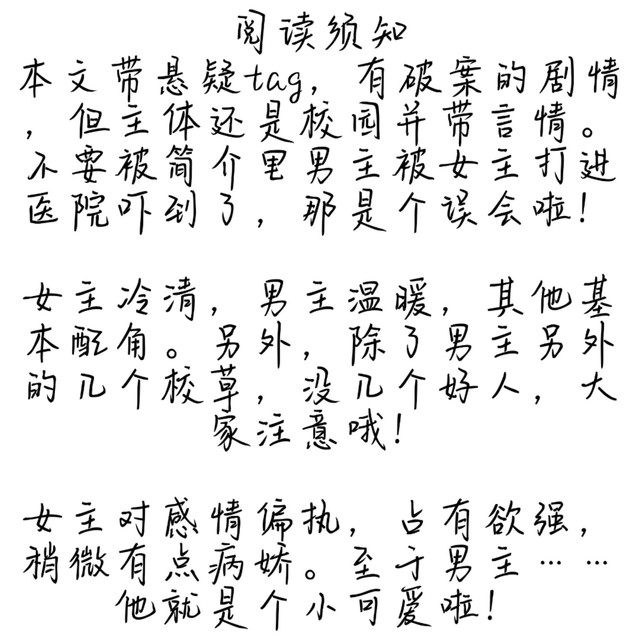 阅读须知
本文带悬疑tag，有破案的剧情
，但主体还是校园并带言情。
不要被简介里男主被女主打进
医院吓到了，那是个误会啦！
女主冷清，男主温暖，其他基
本配角。另外，除了男主另外
的几个校草，没几个好人，大
家注意哦！
女主对感情偏执，占有欲强，
稍微有点病娇。至于男主……
他就是个小可爱啦！